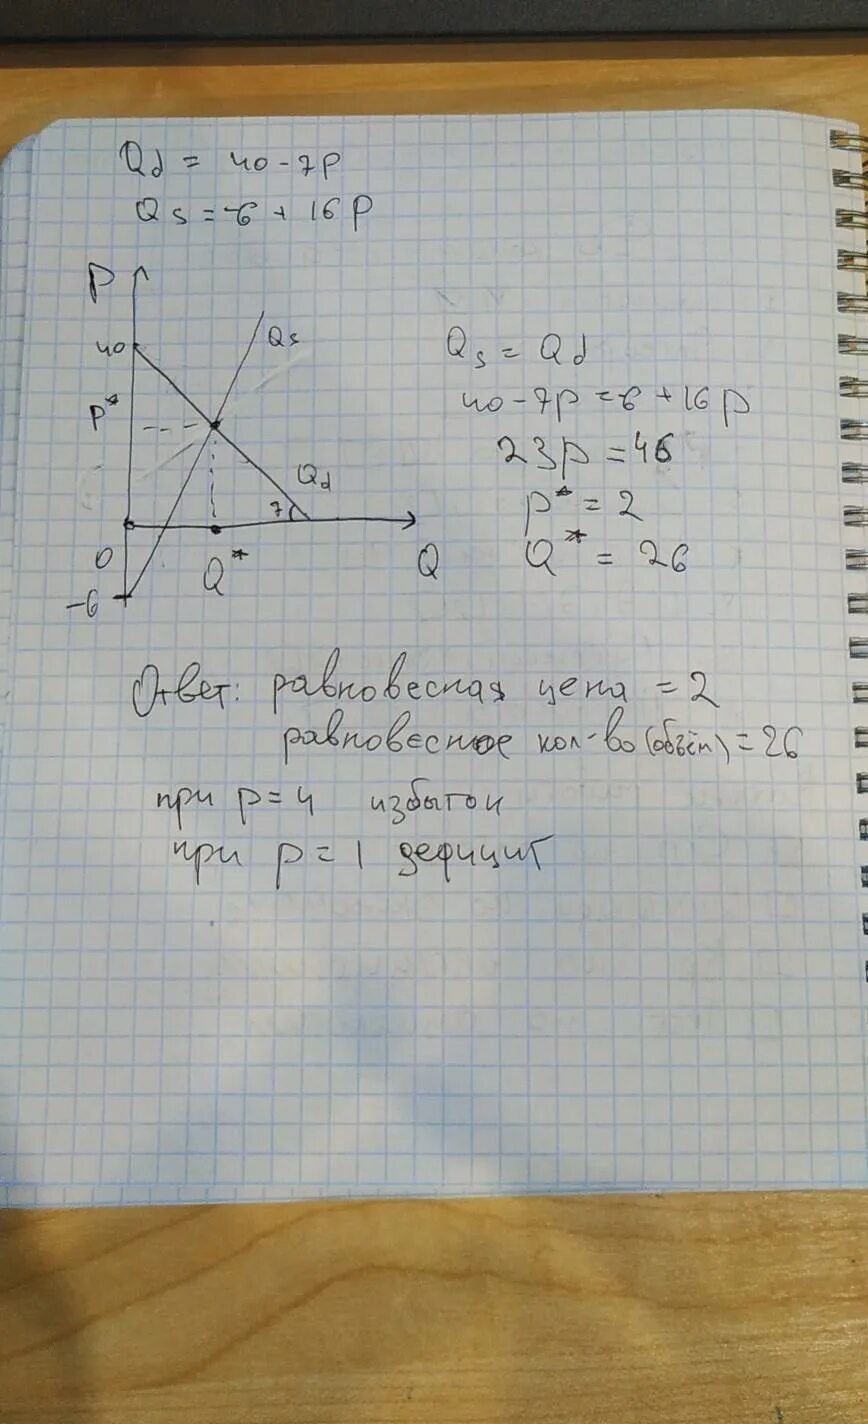 Qd = 40-7p
Qs = -6 + 16p
P
40
Qs
P*
Qd
7
0
Q*
Q
-6
Qs = Qd
40-7p = -6 + 16p
23p = 46
p* = 2
Q* = 26
Ответ: равновесная цена = 2
равновесное кол-во (объём) = 26
при p = 4 избыток
при p = 1 дефицит